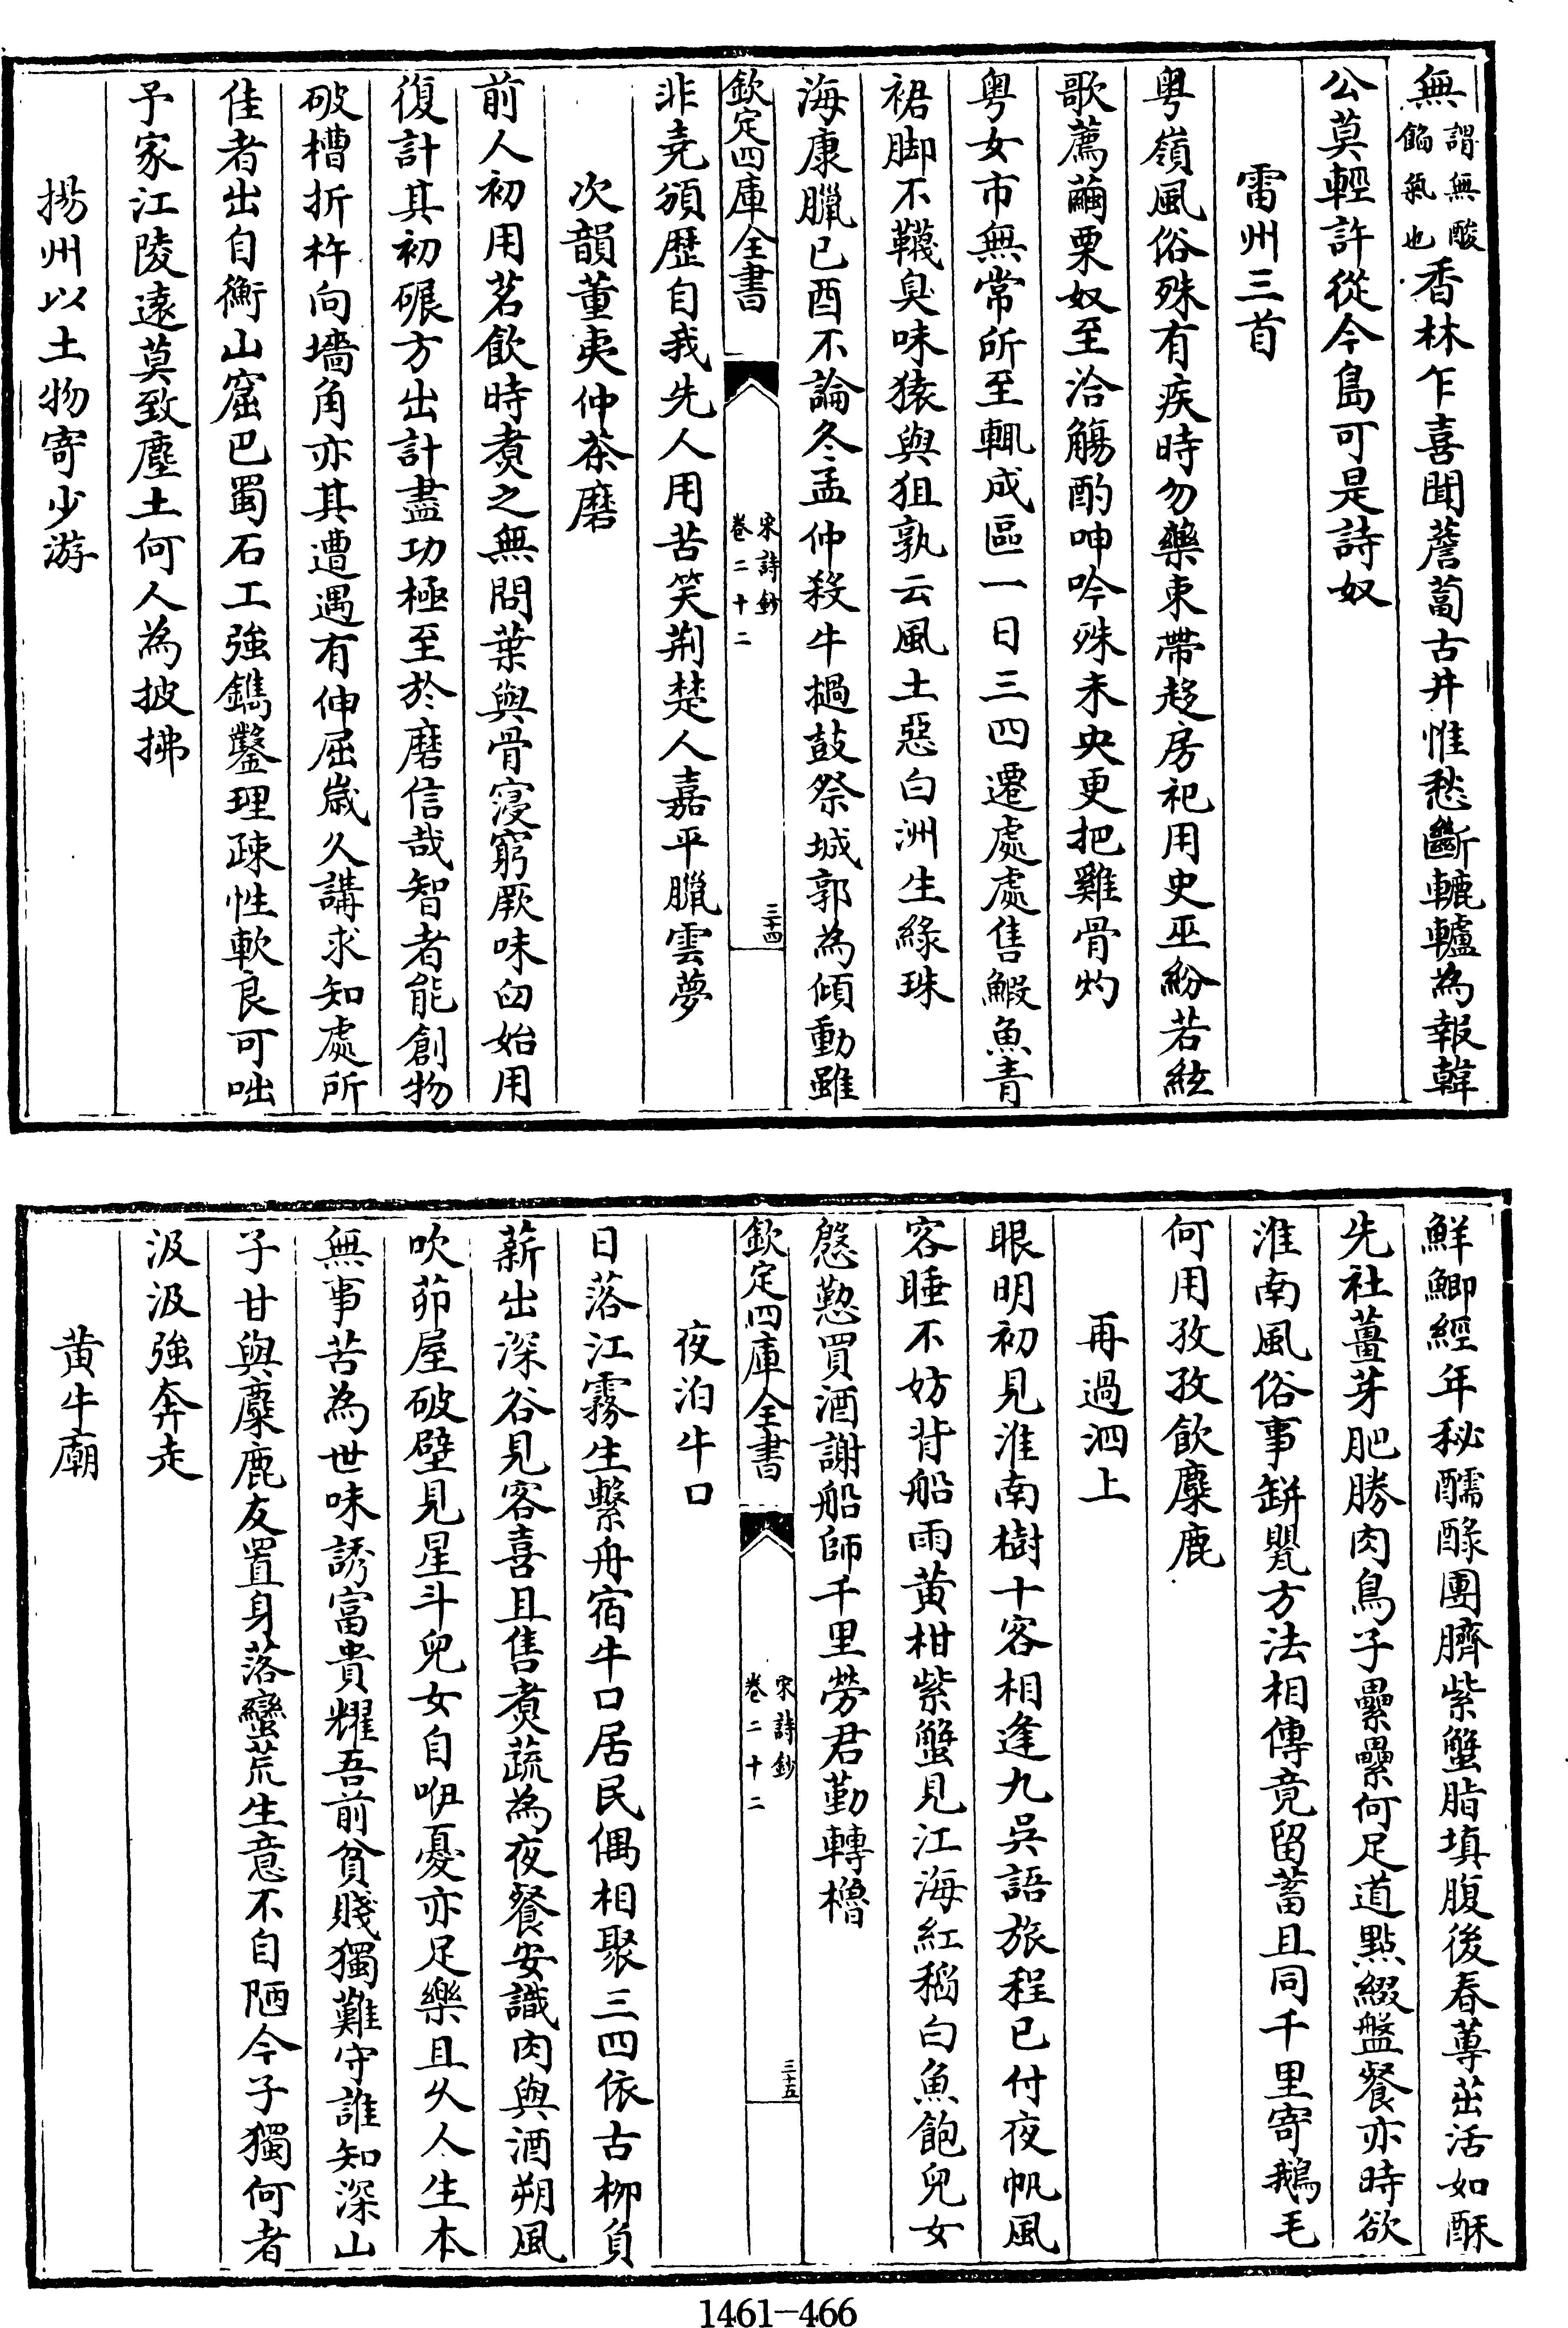 無謂無酸餡氣也香林乍喜聞薝蔔古井惟愁斷轆轤為報韓
公莫輕許從今島可是詩奴
雷州三首
粤嶺風俗殊有疾時勿藥束帶趍房祀用史巫紛若絃
歌薦繭栗奴至洽觴酌呻吟殊未央更把雞骨灼
粤女市無常所至輒成區一日三四遷處處售鰕魚青
裙脚不韈臭味猿與狙孰云風土惡白洲生緑珠
海康臘已酉不論冬孟仲殺牛撾鼓祭城郭為傾動雖
欽定四庫全書
宋詩鈔
卷二十二
三十四
非堯頒歴自我先人用苦笑荆楚人嘉平臘雲夢
次韻董夷仲茶磨
前人初用茗飲時煑之無問葉與骨寖窮厥味臼始用
復計其初碾方出計盡功極至於磨信哉智者能創物
破槽折杵向墻角亦其遭遇有伸屈嵗久講求知處所
佳者出自衡山窟巴蜀石工強鐫鑿理疎性軟良可咄
予家江陵遠莫致塵土何人為披拂
揚州以土物寄少游
鮮鯽經年秘醽醁團臍紫蟹脂填腹後春蓴茁活如酥
先社薑芽肥勝肉鳥子纍纍何足道點綴盤餐亦時欲
淮南風俗事缾甖方法相傳竟留蓄且同千里寄鵝毛
何用孜孜飲麋鹿
再過泗上
眼明初見淮南樹十客相逢九吳語旅程已付夜帆風
客睡不妨背船雨黄柑紫蟹見江海紅稻白魚飽兒女
慇懃買酒謝船師千里勞君勤轉櫓
欽定四庫全書
宋詩鈔
卷二十二
三十五
夜泊牛口
日落江霧生繫舟宿牛口居民偶相聚三四依古栁負
薪出深谷見客喜且售煑蔬為夜餐安識肉與酒朔風
吹茆屋破壁見星斗兒女自咿憂亦足樂且久人生本
無事苦為世味誘富貴耀吾前貧賤獨難守誰知深山
子甘與麋鹿友置身落蠻荒生意不自陋今子獨何者
汲汲強奔走
黄牛廟
1461-466